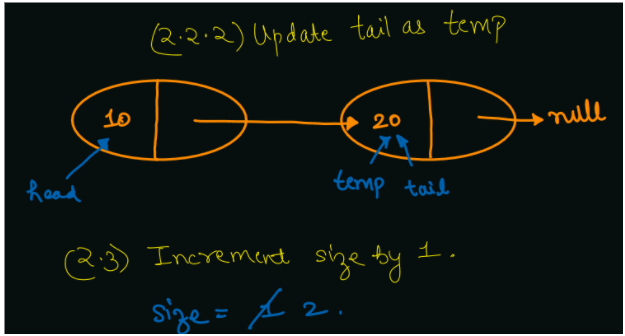 (2.2.2) Update tail as temp
10 20 null
head temp tail
(2.3) Increment size by 1.
size = 1 2.